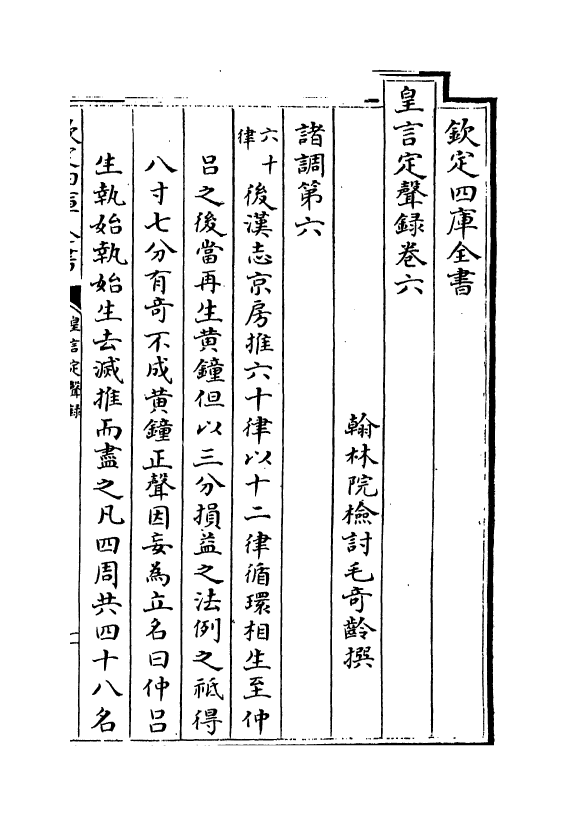 欽定四庫全書
皇言定聲録卷六
翰林院檢討毛奇齡撰
諸調第六
六十律後漢志京房推六十律以十二律循環相生至仲
呂之後當再生黄鐘但以三分損益之法例之祗得
八寸七分有奇不成黄鐘正聲因妄為立名曰仲呂
生執始執始生去滅推而盡之凡四周共四十八名
欽定四庫全書
皇言定聲録